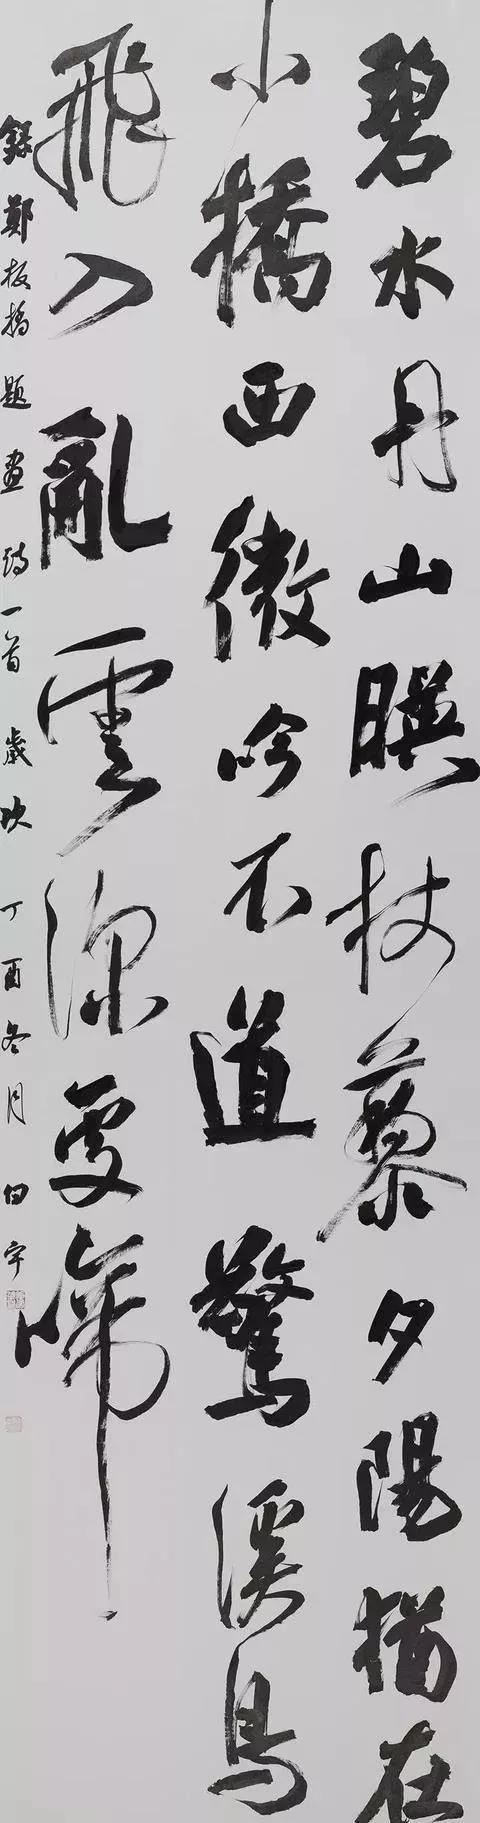 碧水丹山暎杖藜夕陽猶在
小橋西微吟不道驚溪鳥
飛入亂雲深處啼
錄鄭板橋題畫詩一首歲次丁酉冬月白宇